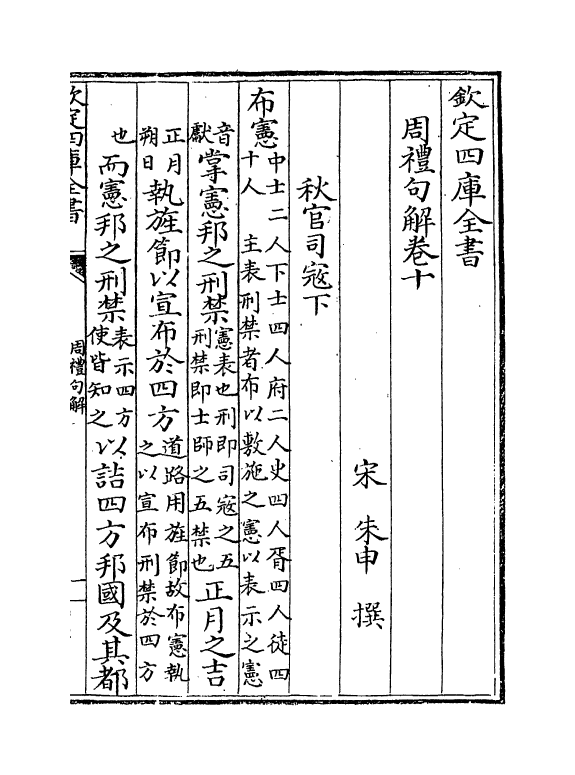 欽定四庫全書
周禮句解卷十
宋 朱申 撰
秋官司寇下
布憲中士二人下士四人府二人史四人胥四人徒四
十人 主表刑禁者布以敷施之憲以表示之憲
音
獻掌憲邦之刑禁憲表也刑即司寇之五
刑禁即士師之五禁也正月之吉
正月
朔日執旌節以宣布於四方道路用旌節故布憲執
之以宣布刑禁於四方
也而憲邦之刑禁表示四方
使皆知之以詰四方邦國及其都
欽定四庫全書
周禮句解
一